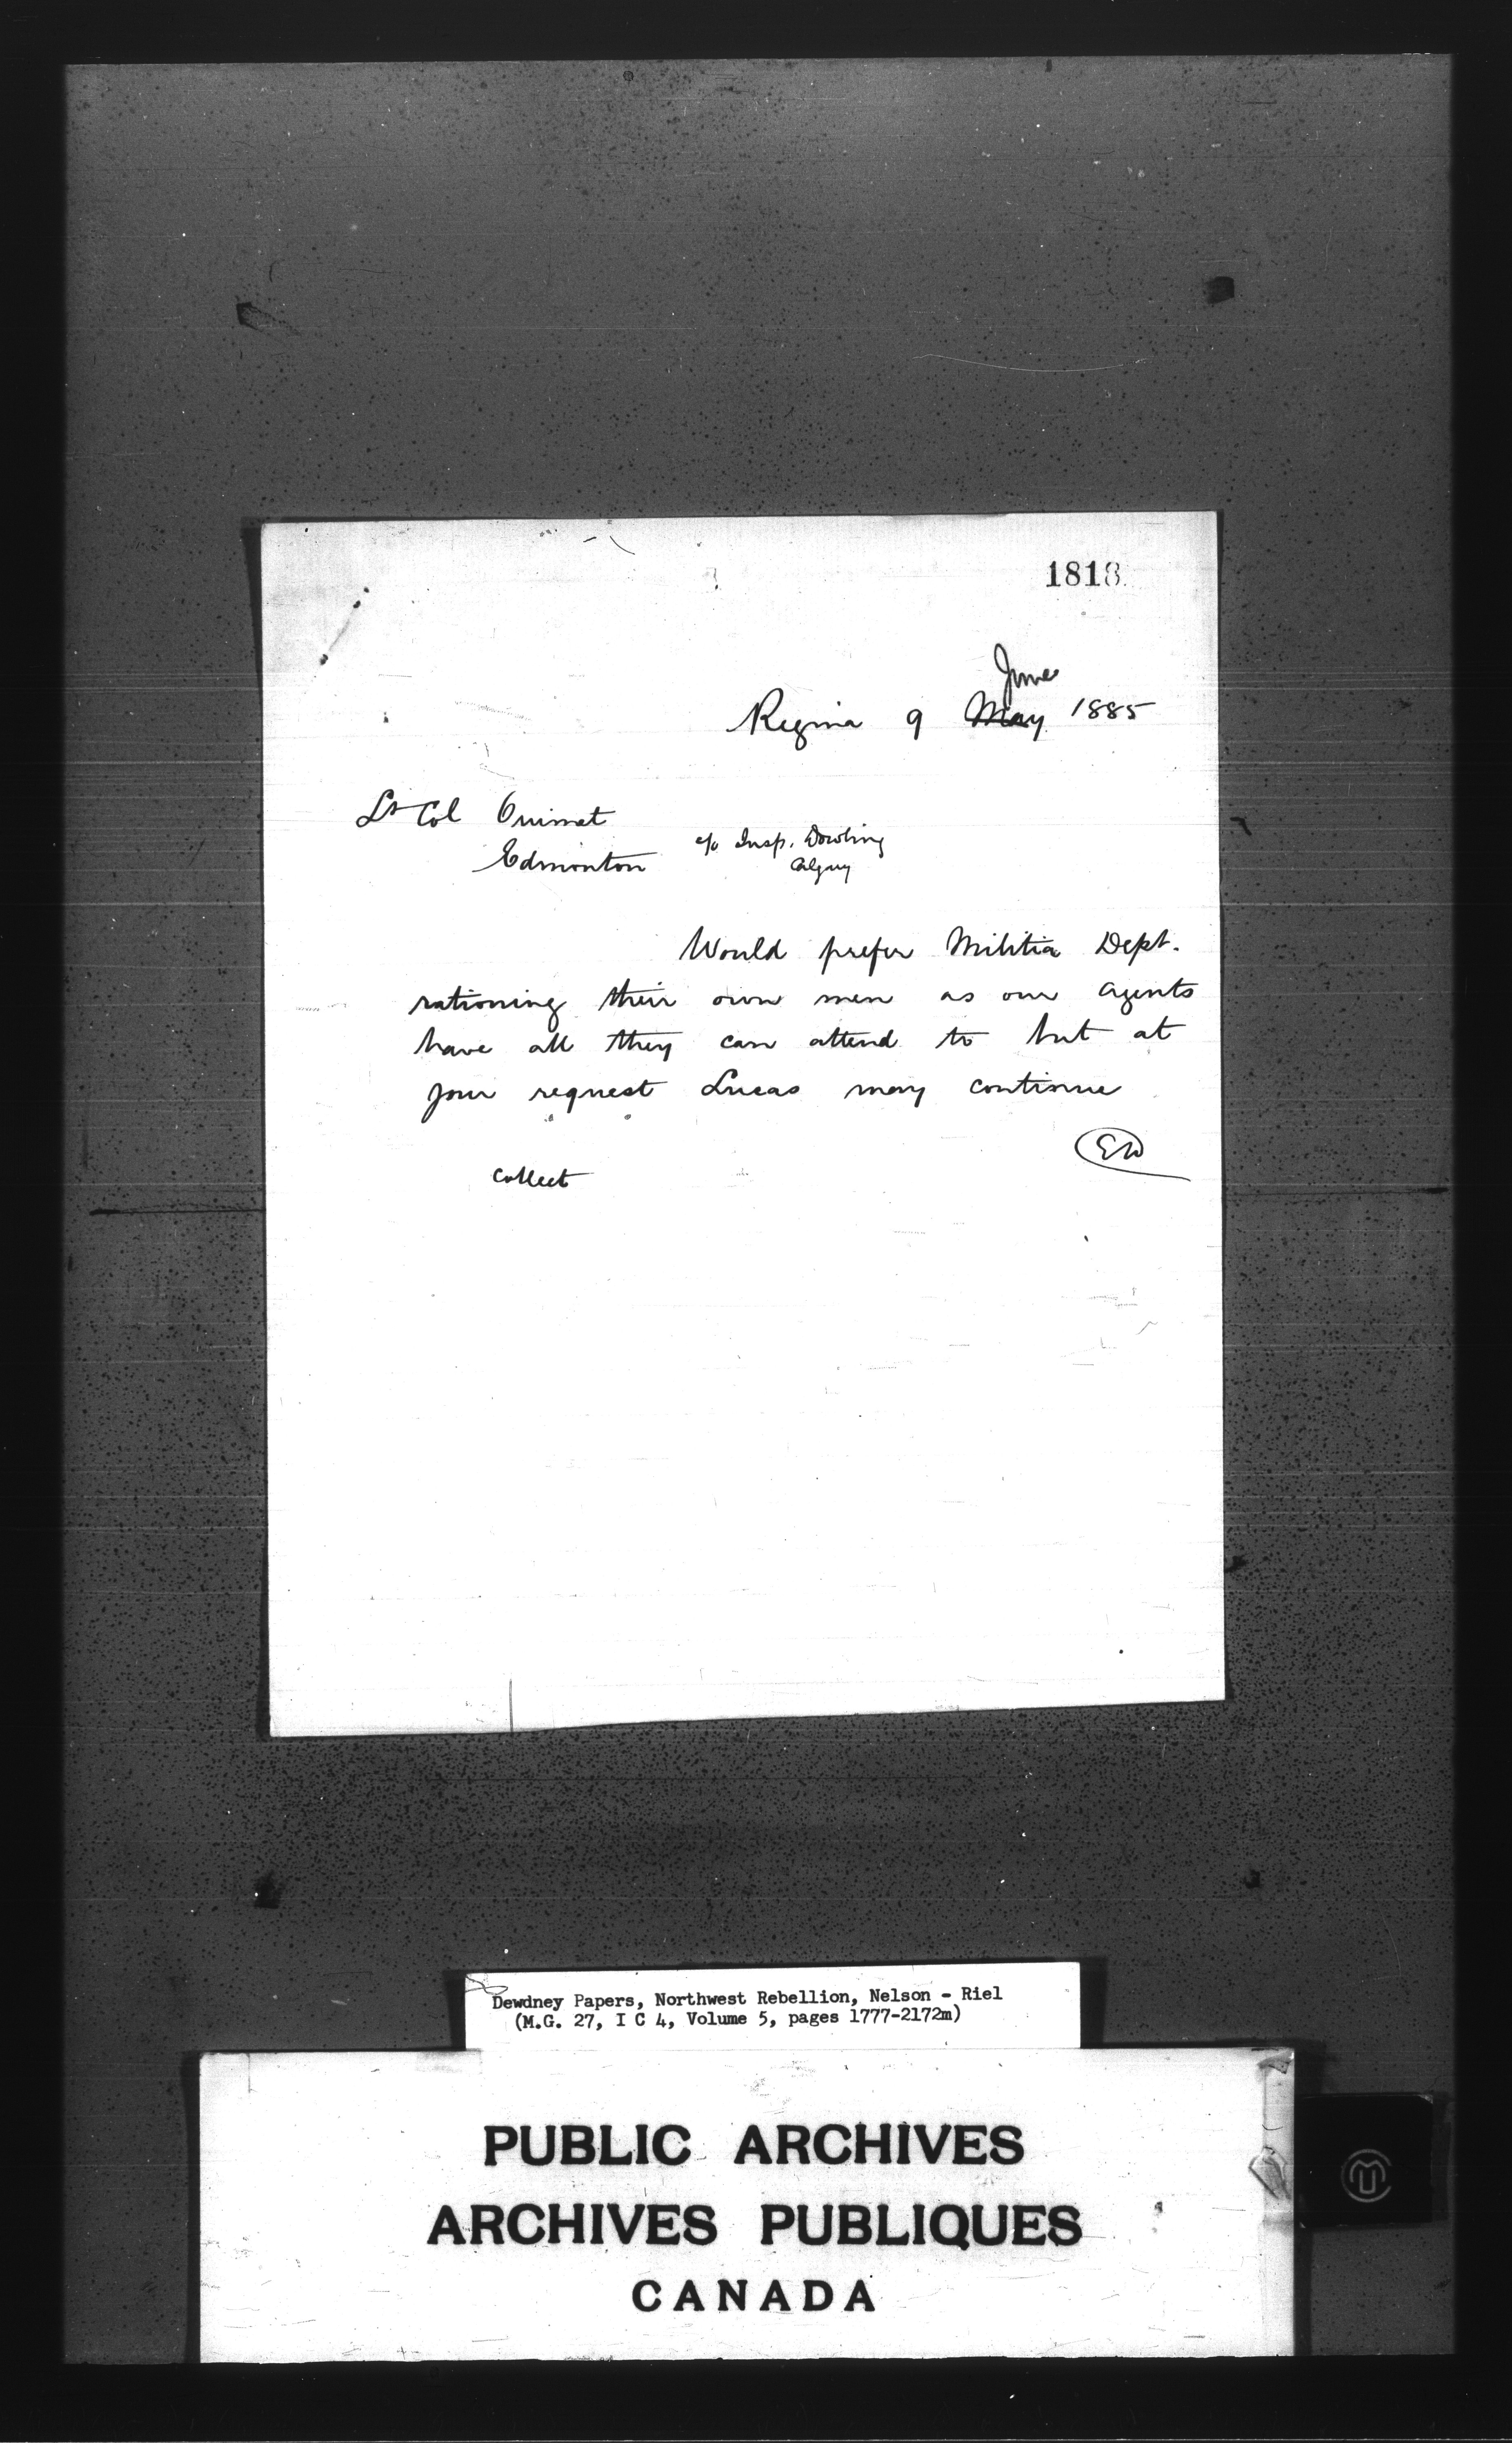 1818
June
Regina 9 May 1885
Lt Col Ouimet
Edmonton c/o Insp. Dowling
Calgary
Would prefer Militia Dept.
rationing their own men as our agents
have all they can attend to but at
your request Lucas may continue
ED
Collect
Dewdney Papers, Northwest Rebellion, Nelson - Riel
(M.G. 27, I C 4, Volume 5, pages 1777-2172m)
PUBLIC ARCHIVES
ARCHIVES PUBLIQUES
CANADA